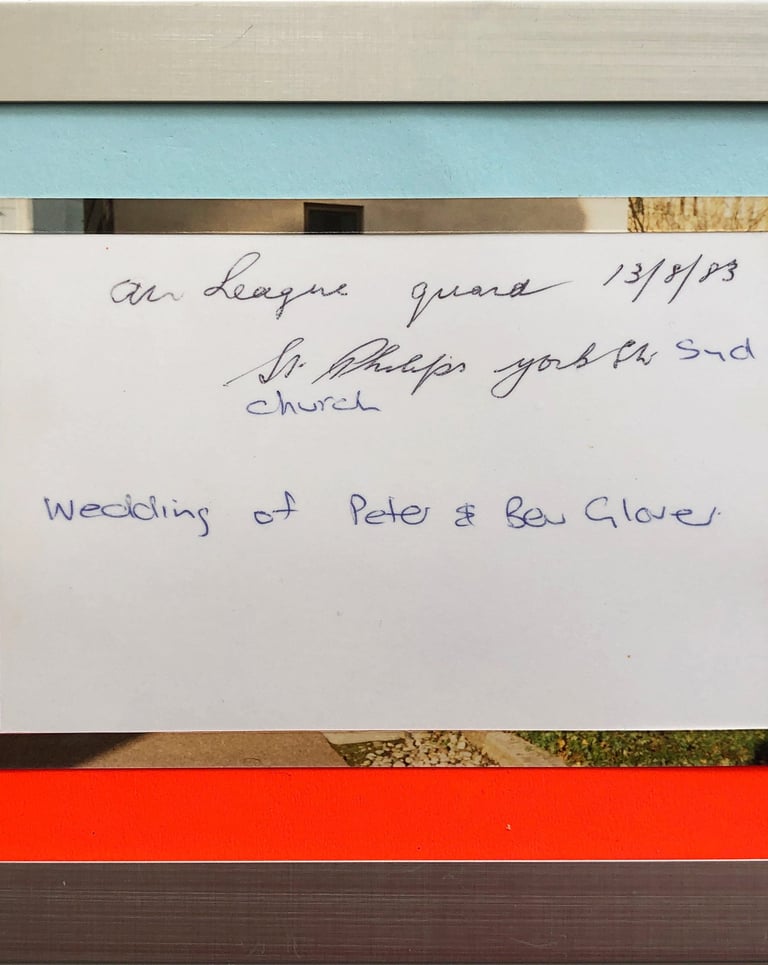 Air League guard 13/8/83
St. Philips york St. Syd
church
Wedding of Peter & Bev Glover